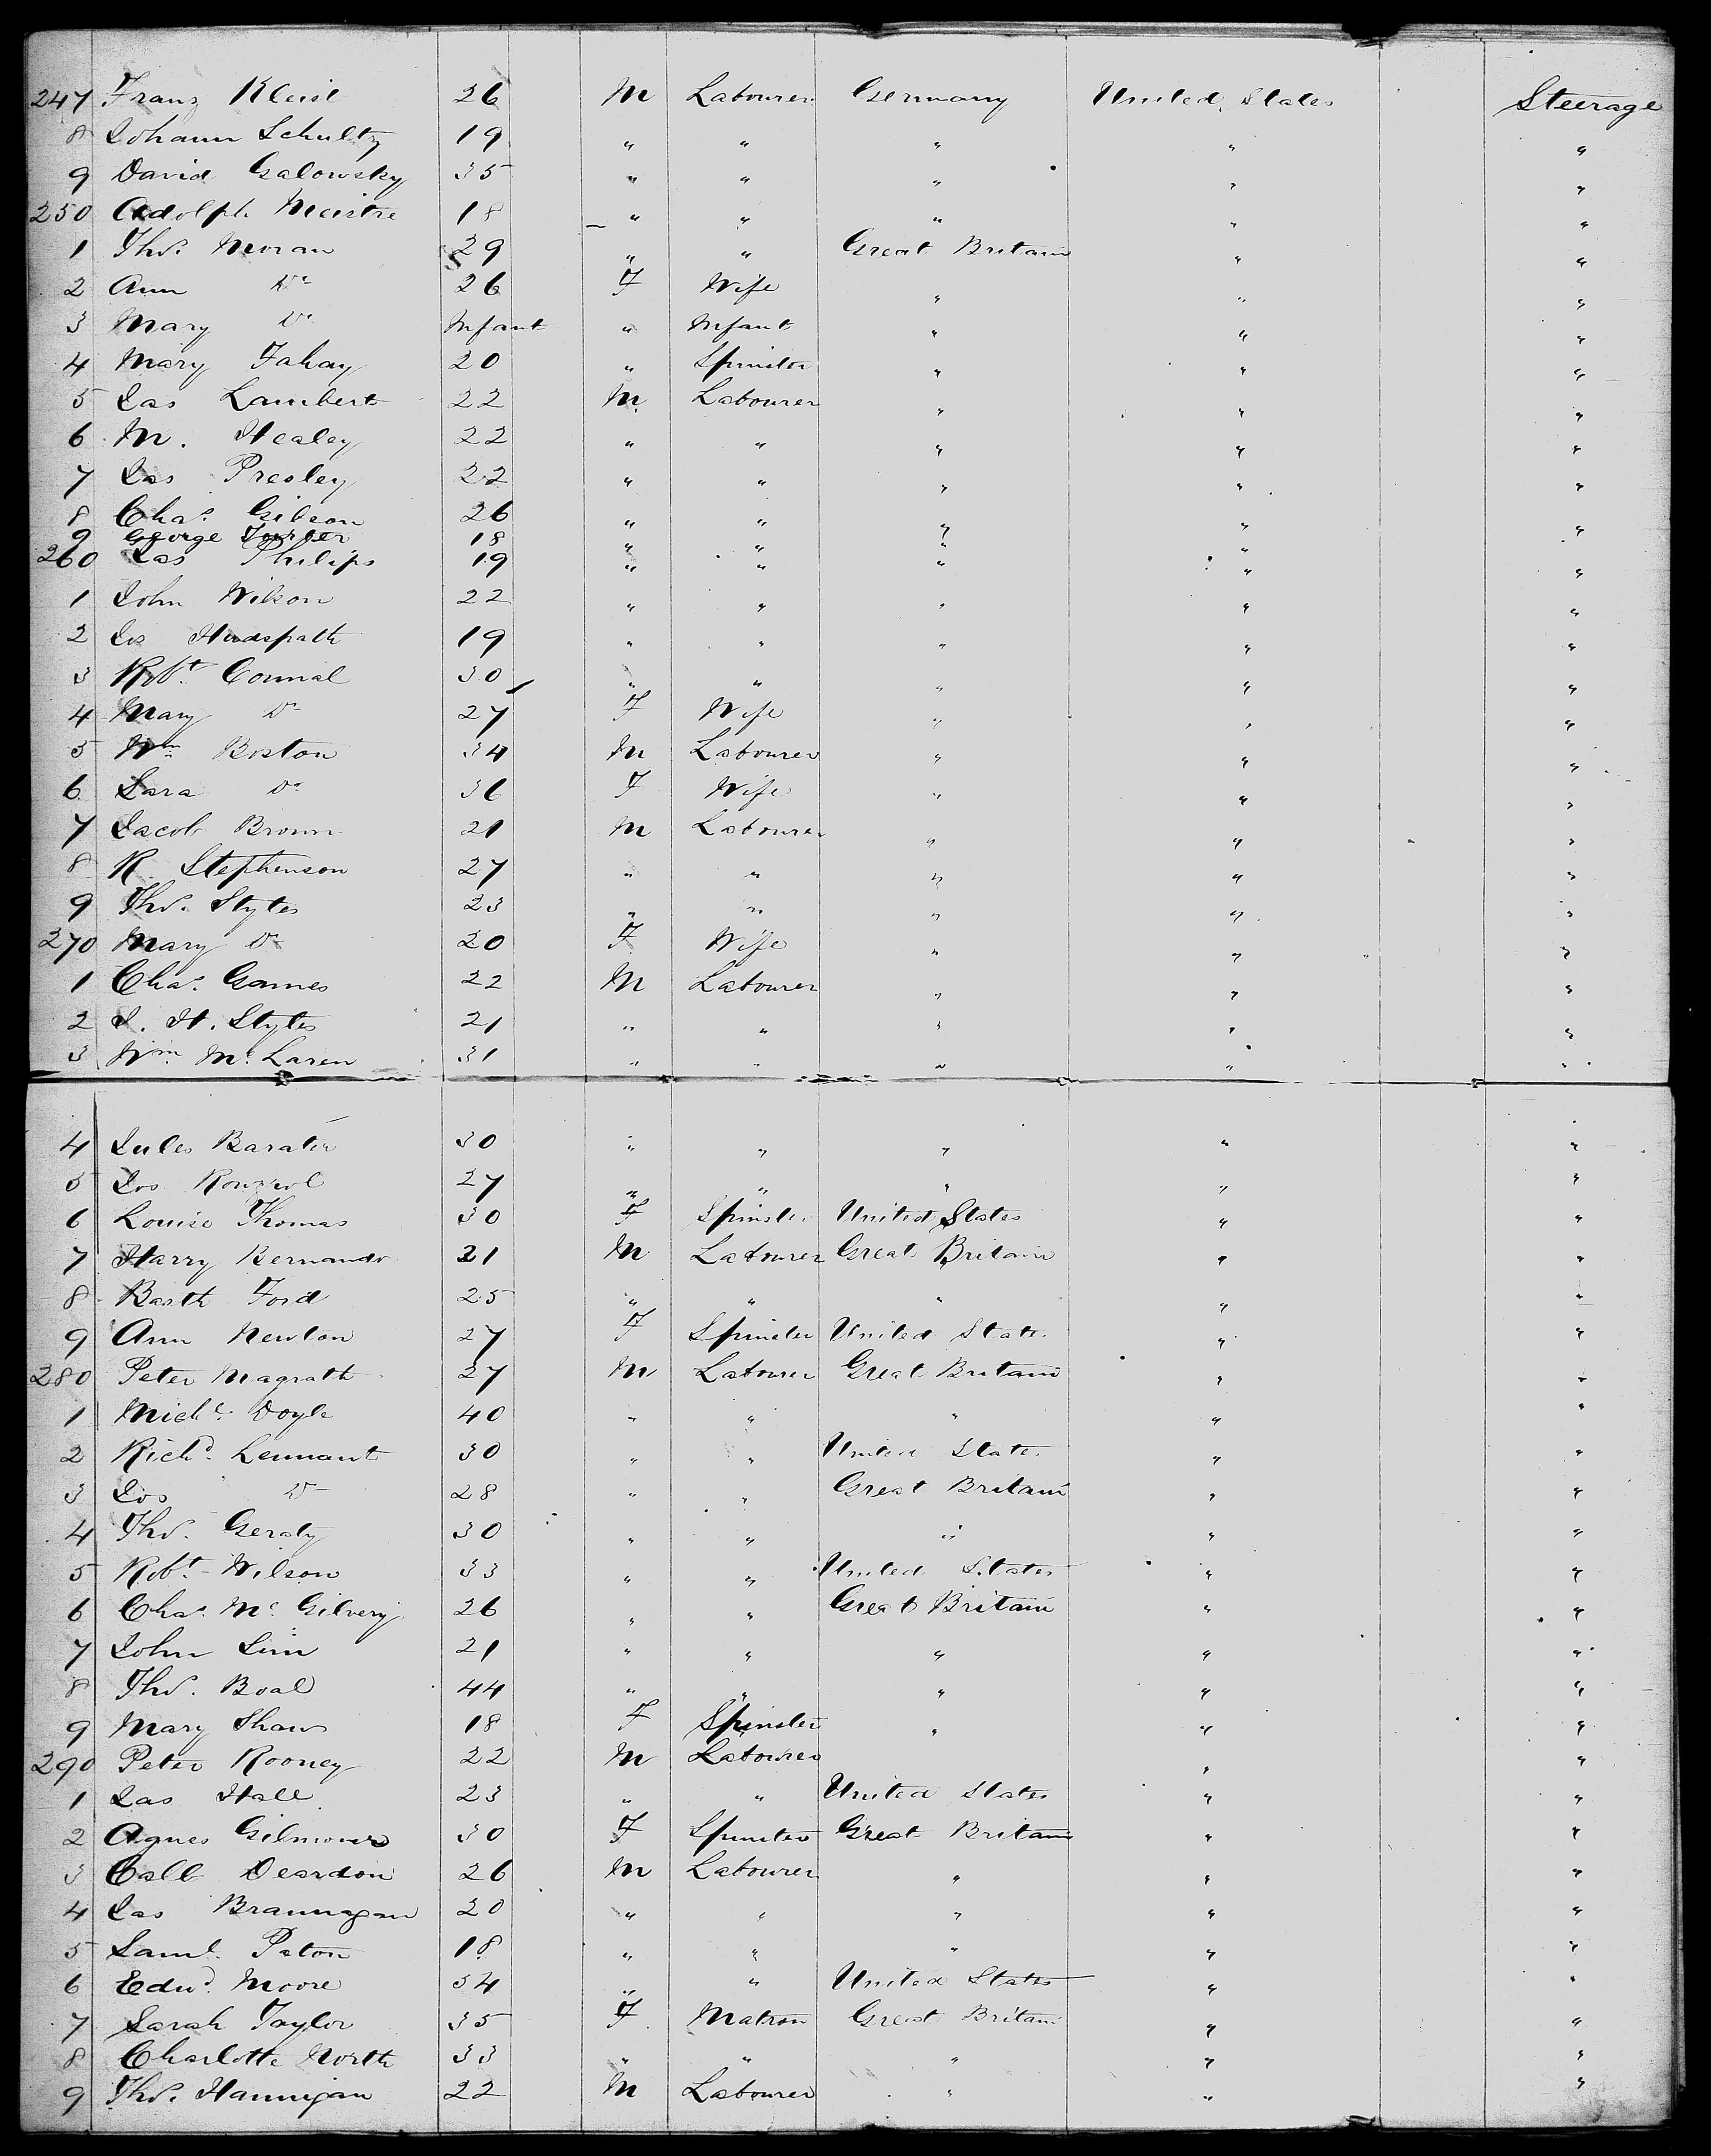 247 Franz Kleist 26 M Labourer Germany United States Steerage
8 Johann Schultz 19 " " " " "
9 David Galowsky 35 " " " " "
250 Adolph Meistre 18 " " " " "
1 Thos. Moran 29 " " Great Britain " "
2 Ann Do 26 F Wife " " "
3 Mary Do Infant " Infant " " "
4 Mary Fahay 20 " Spinster " " "
5 Jas Lambert 22 M Labourer " " "
6 M. Healey 22 " " " " "
7 Jas Presley 22 " " " " "
8 Chas. Gibson 26 " " " " "
9 George 18 " " " "
260 Jas Philips 19 " " " " "
1 John Wilson 22 " " " " "
2 Jos Hudspath 19 " " " " "
3 Robt. Connal 30 " " " " "
4 Mary Do 27 F Wife " " "
5 Wm Boston 34 M Labourer " " "
6 Sara Do 36 F Wife " " "
7 Jacob Brown 21 M Labourer " " "
8 R. Stephenson 27 " " " " "
9 Thos. Styles 23 " " " " "
270 Mary Do 20 F Wife " " "
1 Chas. Games 22 M Labourer " " "
2 J. H. Styles 21 " " " " "
3 Wm Mc Laren 31 " " " " "
4 Jules Baratin 30 " " " " "
5 Jos 27 " " " " "
6 Louise Thomas 30 F Spinster United States " "
7 Harry Bernando 21 M Labourer Great Britain " "
8 Barth Ford 25 " " " " "
9 Ann Newton 27 F Spinster United States " "
280 Peter Magrath 27 M Labourer Great Britain " "
1 Michl. Doyle 40 " " " " "
2 Richd. Lennant 30 " " United States " "
3 Jos Do 28 " " Great Britain " "
4 Thos. Geraty 30 " " " " "
5 Robt. Wilson 33 " " United States " "
6 Chas. Mc Gilvery 26 " " Great Britain " "
7 John Sim 21 " " " " "
8 Thos. Boal 44 " " " " "
9 Mary Shaw 18 F Spinster " " "
290 Peter Rooney 22 M Labourer " "
1 Jas Hall 23 " " United States " "
2 Agnes Gilmour 30 F Spinster Great Britain " "
3 Call Deardon 26 M Labourer " " "
4 Jas Brannagan 20 " " " " "
5 Saml. Paton 18 " " " " "
6 Edwd. Moore 34 " " United States " "
7 Sarah Taylor 35 F Matron Great Britain " "
8 Charlotte North 33 " " " " "
9 Thos. Hannigan 22 M Labourer " " "